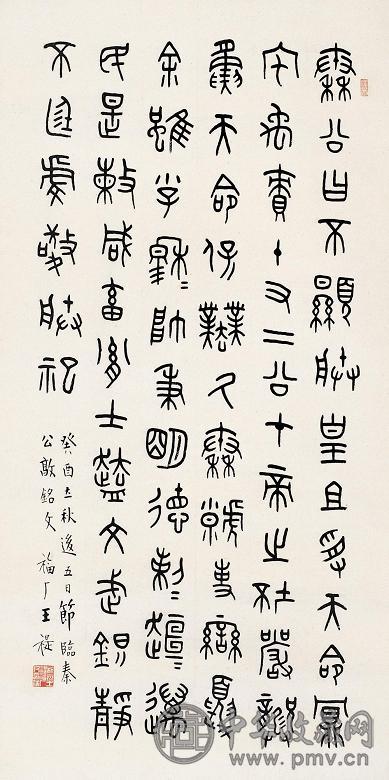 秦公曰不顯朕皇且受天命鼏
宅禹責十又二公才帝之坏嚴龏
夤天命保業氒秦虩事蠻夏
余雖小子穆=帥秉明德剌=趄=邁
民是敕咸畜胤士盍=文武鎮靜
不廷虔敬朕祀
癸酉立秋後五日節臨秦
公敦銘文 福厂王禔
中国收藏网
www.pmv.cn